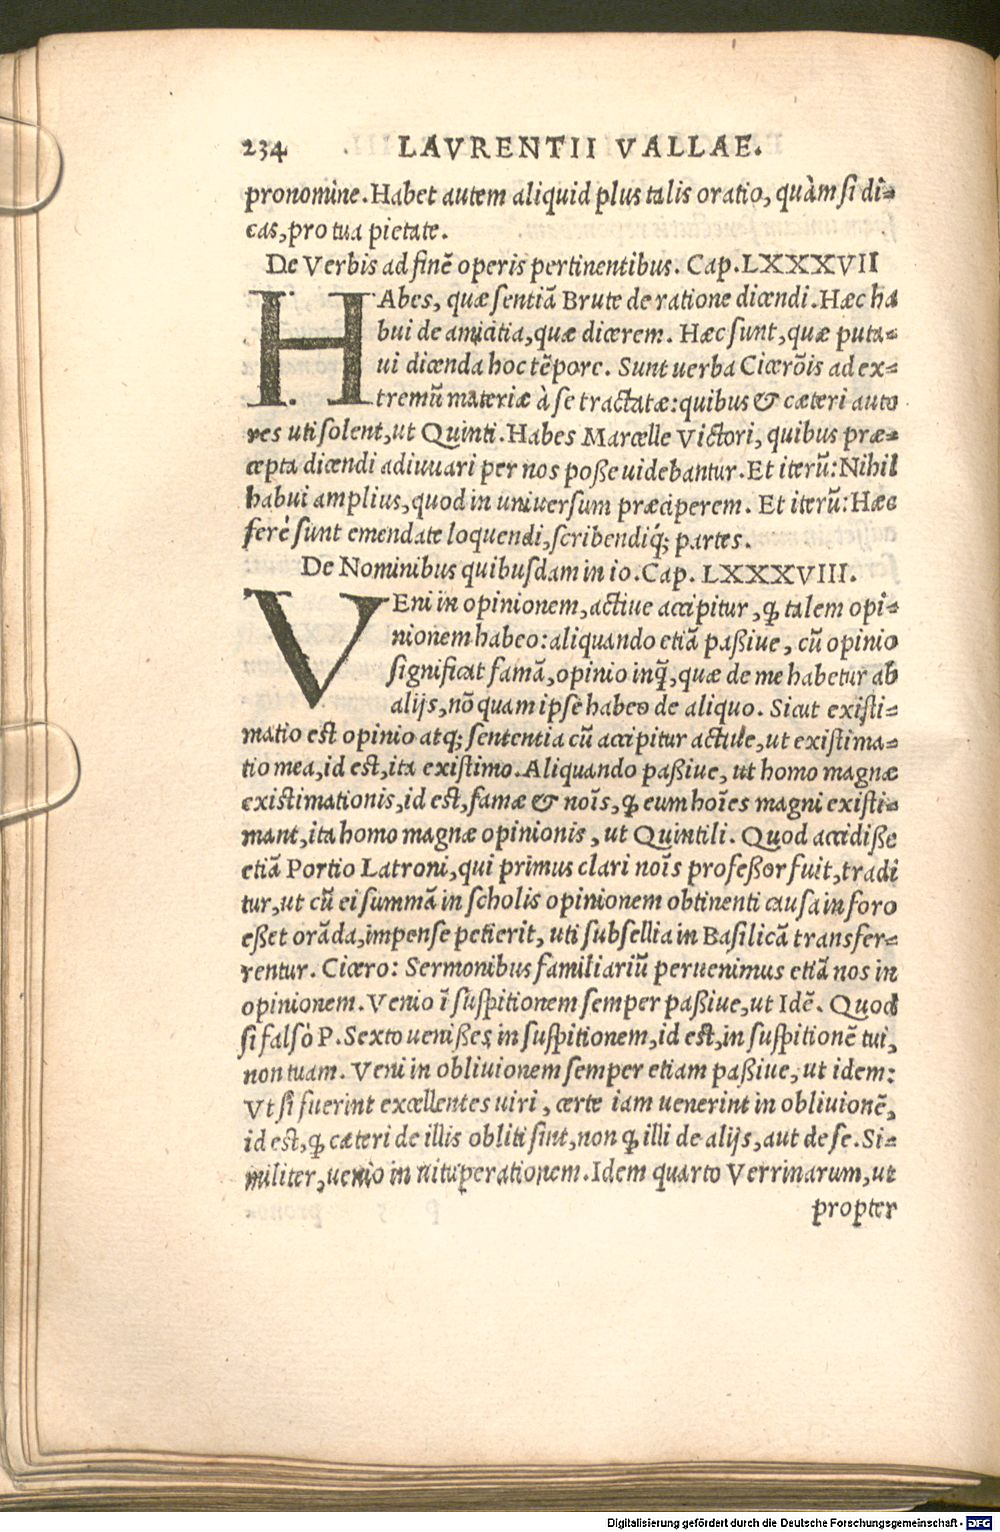 234 LAVRENTII VALLAE.
pronomine. Habet autem aliquid plus talis oratio, quàm si di-
cas, pro tua pietate.
De Verbis ad finẽ operis pertinentibus. Cap. LXXXVII
HAbes, quæ sentiã Brute de ratione dicendi. Hæc ha
bui de amicitia, quæ dicerem. Hæc sunt, quæ puta-
ui dicenda hoc tẽpore. Sunt uerba Cicerõis ad ex-
tremũ materiæ à se tractatæ: quibus & cæteri auto
res uti solent, ut Quinti. Habes Marcelle Victori, quibus præ-
cepta dicendi adiuuari per nos posse uidebantur. Et iterũ: Nihil
habui amplius, quod in uniuersum præciperem. Et iterũ: Hæc
ferè sunt emendate loquendi, scribendiq́; partes.
De Nominibus quibusdam in io. Cap. LXXXVIII.
VEni in opinionem, actiue accipitur, ꝙ talem opi-
nionem habeo: aliquando etiã passiue, cũ opinio
significat famã, opinio inq̃, quæ de me habetur ab
alijs, nõ quam ipse habeo de aliquo. Sicut existi-
matio est opinio atq; sententia cũ accipitur actiue, ut existima-
tio mea, id est, ita existimo. Aliquando passiue, ut homo magnæ
existimationis, id est, famæ & noĩs, ꝙ eum hoĩes magni existi-
mant, ita homo magnæ opinionis, ut Quintili. Quod accidisse
etiã Portio Latroni, qui primus clari noĩs professor fuit, tradi
tur, ut cũ ei summã in scholis opinionem obtinenti causa in foro
esset orãda, impense petierit, uti subsellia in Basilicã transfer-
rentur. Cicero: Sermonibus familiariũ peruenimus etiã nos in
opinionem. Venio ĩ suspitionem semper passiue, ut Idẽ. Quod
si falsò P. Sexto uenisses in suspitionem, id est, in suspitionẽ tui,
non tuam. Veni in obliuionem semper etiam passiue, ut idem:
Vt si fuerint excellentes uiri, certe iam uenerint in obliuionẽ,
id est, ꝙ cæteri de illis obliti sint, non ꝙ illi de alijs, aut de se. Si-
militer, uenio in uituperationem. Idem quarto Verrinarum, ut
propter
Digitalisierung gefördert durch die Deutsche Forschungsgemeinschaft - DFG